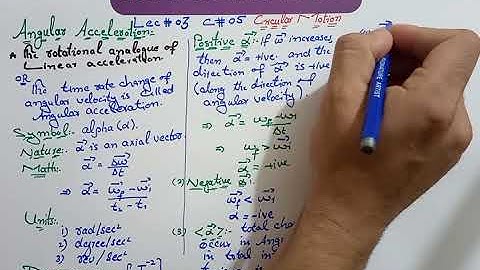 Lec#03 C#05 Circular Motion
Angular Acceleration:-
* The rotational analogue of
Linear acceleration.
OR
The time rate change of
angular velocity is called
Angular acceleration.
Symbol:- alpha (α).
Nature:- α⃗ is an axial vector
Math:- α⃗ = Δω⃗/Δt
⇒ α⃗ = ω⃗f - ω⃗i / t2 - t1
Units:-
1) rad/sec²
2) degree/sec²
3) rev/sec²
[T⁻²]
Positive α⃗:- If ω⃗ increases
then α⃗ = +ive. and the
direction of α⃗ is +ive
(along the direction of
angular velocity).
⇒ α⃗ = ω⃗f - ω⃗i / Δt
⇒ ω⃗f > ω⃗i
α⃗ = +ive
(2) Negative α⃗:-
ω⃗f < ω⃗i
α = -ive
(3) <α⃗>:- total
occur in
in total